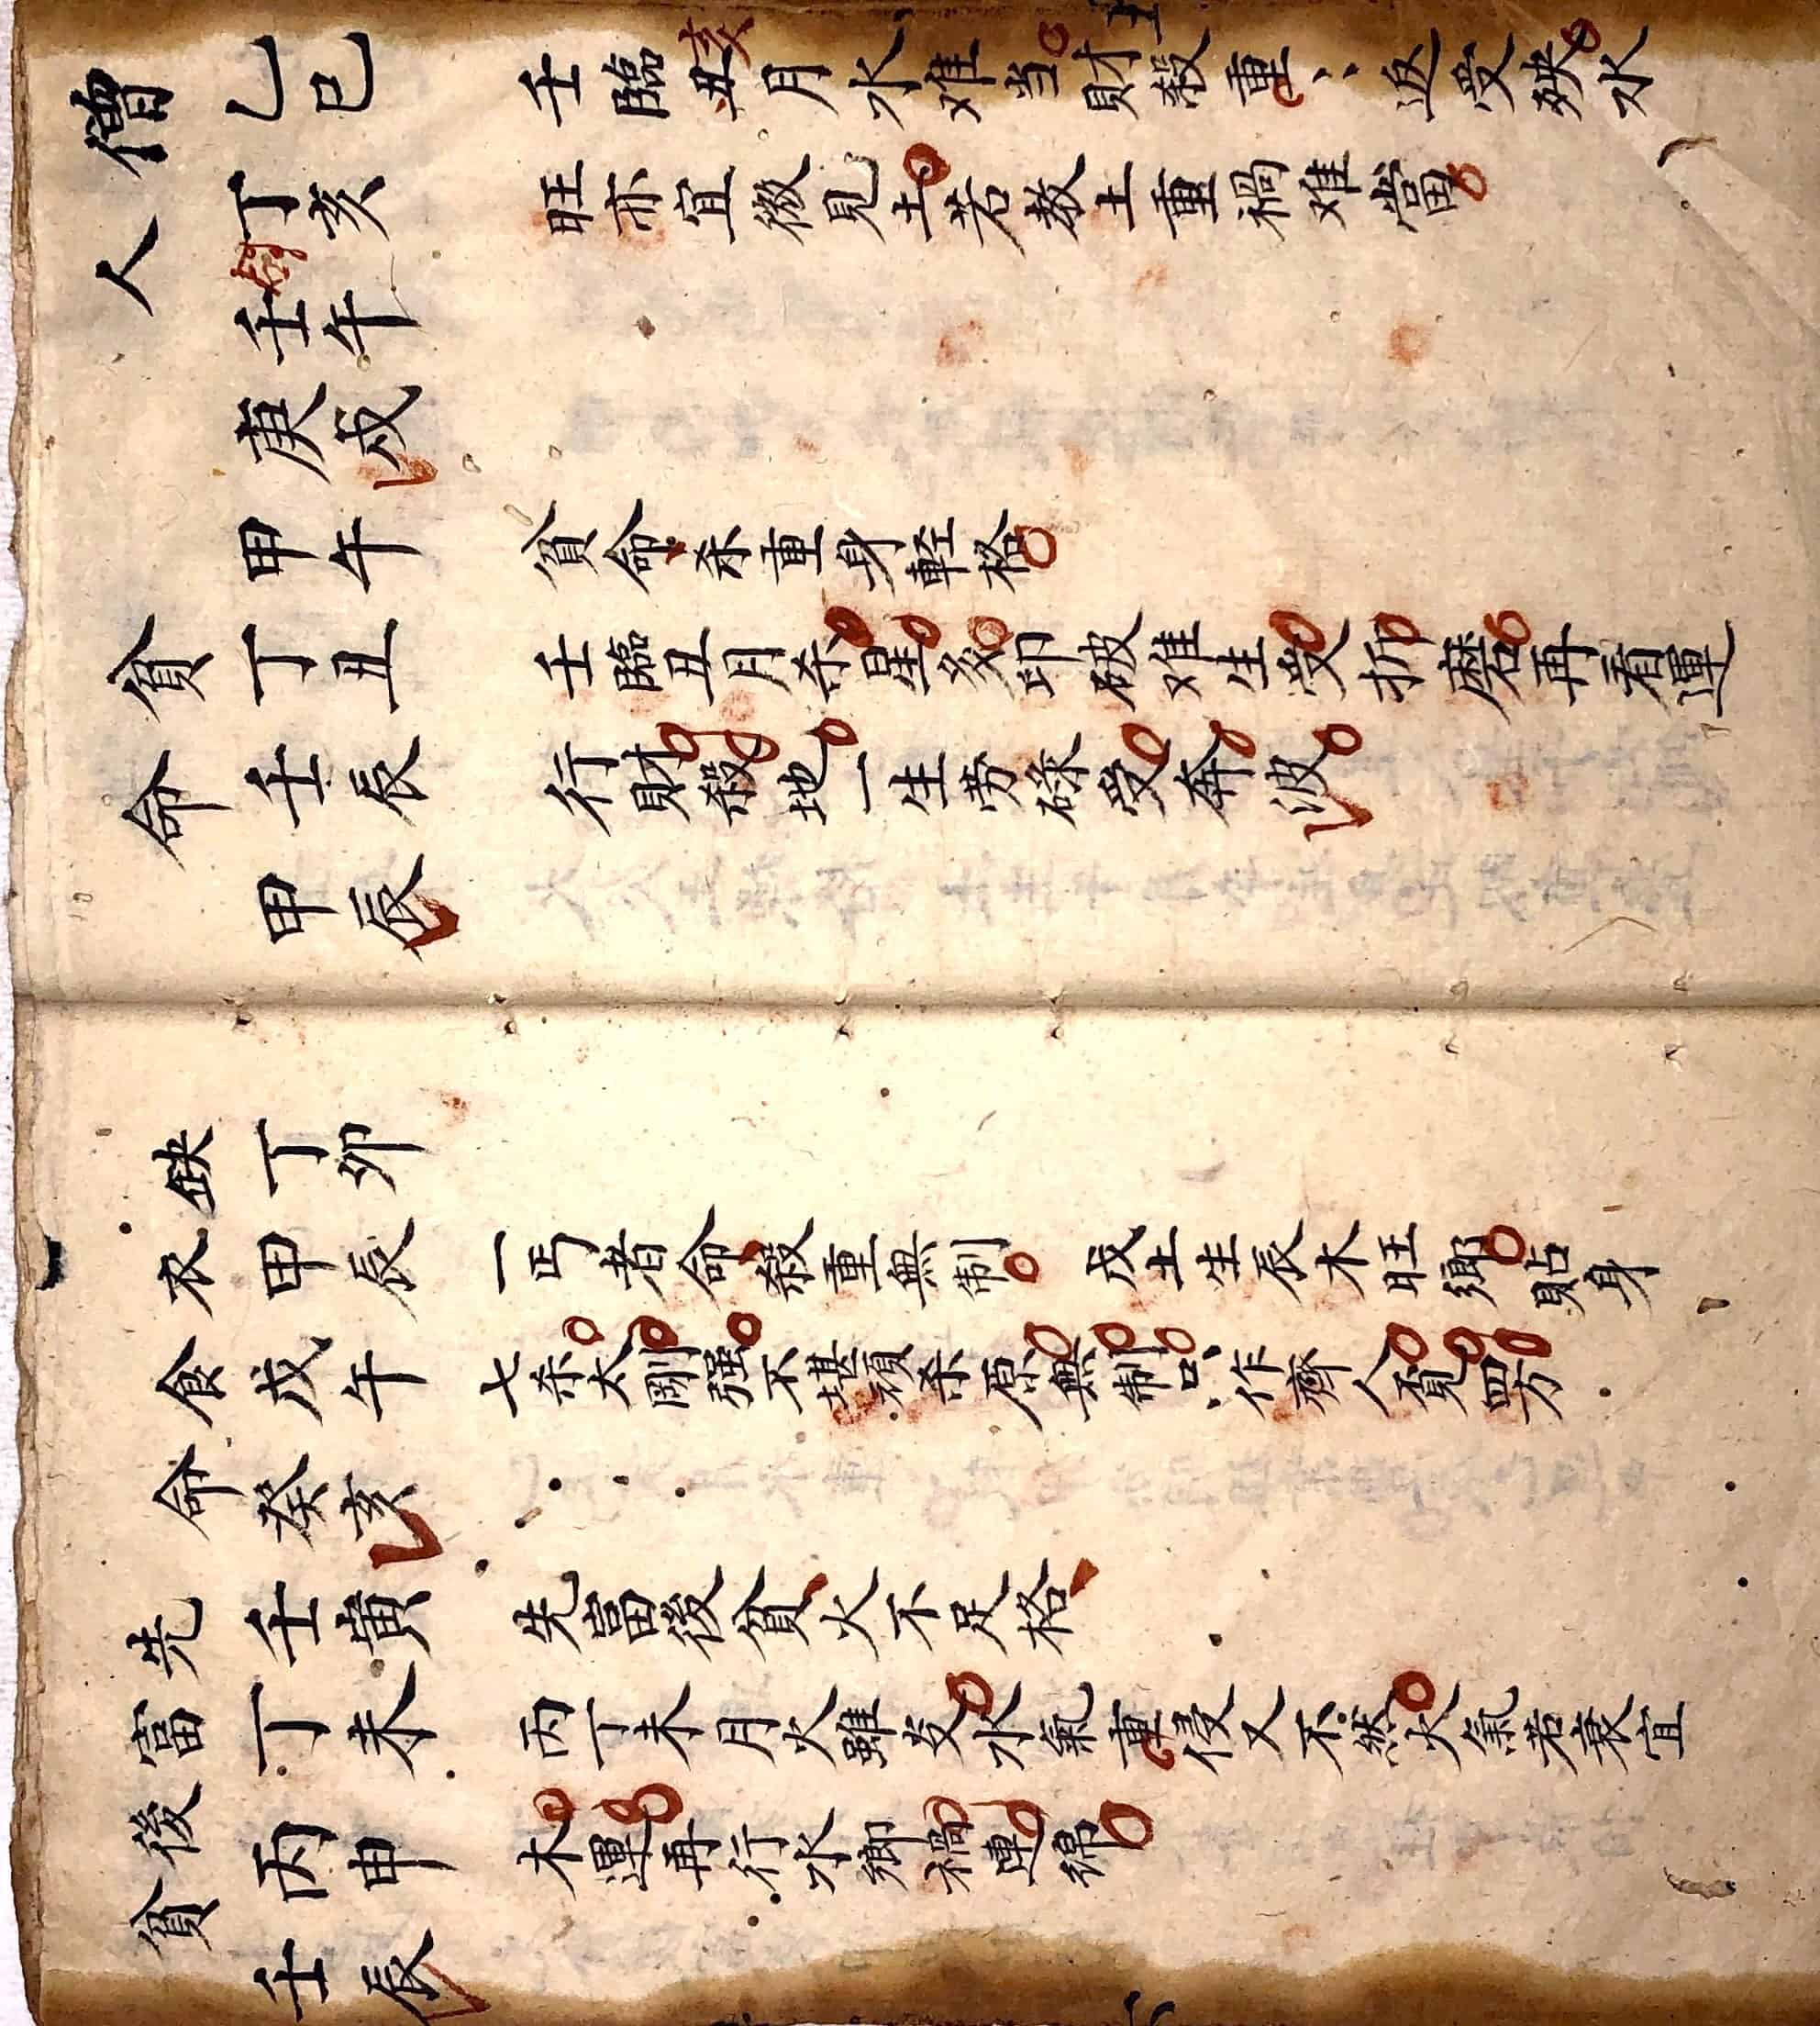 僧人
乙巳
丁亥
壬午
庚戌
壬臨亥月水难当財殺重〻返受殃水
旺亦宜微見土若教土重禍难當
貧命
甲午
丁丑
壬辰
甲辰
貧命杀重身輕格
壬臨丑月杀星多印破难生受折磨再看運
行財殺地一生劳碌受奔波
缺衣食命
丁卯
甲辰
戊午
癸亥
一丐者命殺重無制 戊土生辰木旺鄉貼身
七杀太剛强不堪頑杀原無制叫作齊人覓四方
先富後貧
壬寅
丁未
丙申
壬辰
先富後貧火不足格
丙丁未月火雖炎水氣重侵又不然火氣若衰宜
木運再行水鄉禍連綿